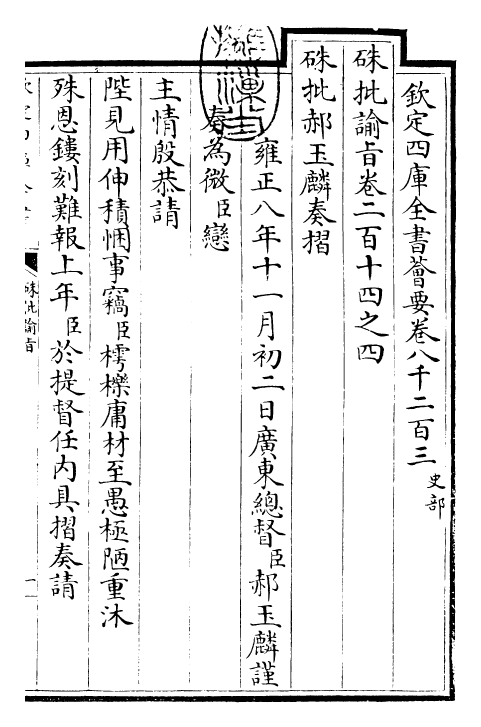 欽定四庫全書薈要卷八千二百三 史部
硃批諭旨卷二百十四之四
硃批郝玉麟奏摺
雍正八年十一月初二日廣東總督臣郝玉麟謹
奏為微臣戀
主情殷恭請
陛見用伸積悃事竊臣樗櫟庸材至愚極陋重沐
殊恩鏤刻難報上年臣於提督任內具摺奏請
硃批諭旨
一